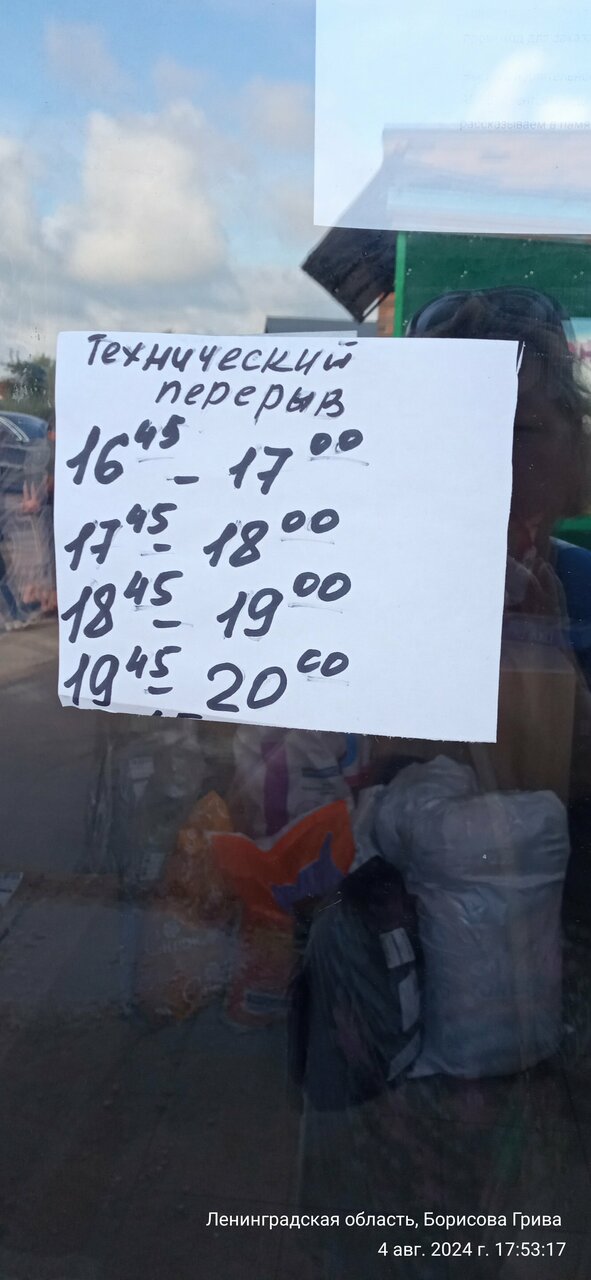 рассказываем в памя
Технический
перерыв
16 45 - 17 00
17 45 - 18 00
18 45 - 19 00
19 45 - 20 00
Ленинградская область, Борисова Грива
4 авг. 2024 г. 17:53:17